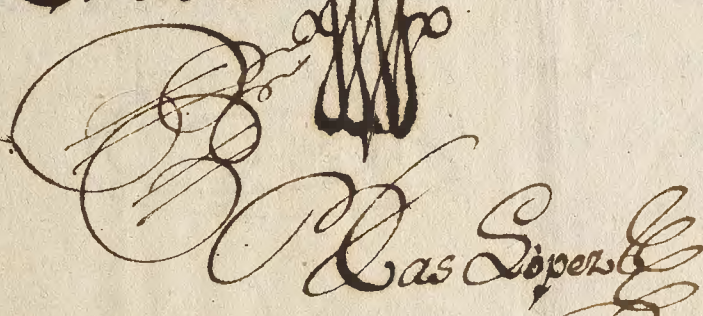 Blas Lòpez